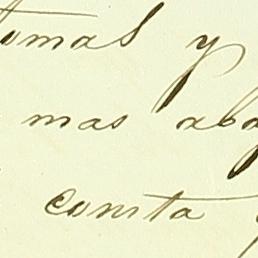 tomas y
mas aba
consta